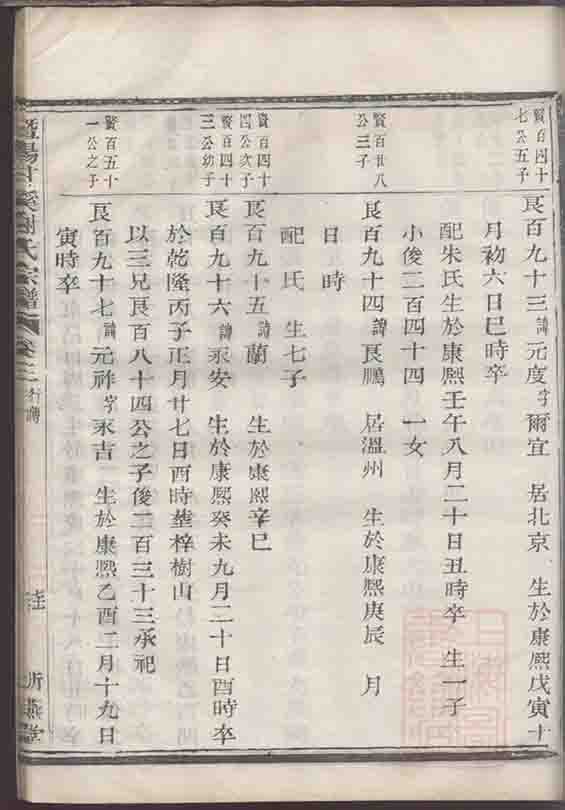 賢百四十
七公五子
良百九十三諱元度字爾宜 居北京 生於康熙戊寅十
月初六日巳時卒
配朱氏生於康熙壬午八月二十日丑時卒 生一子
小俊二百四十四 一女
賢百廿八
公三子
良百九十四諱良鵬 居溫州 生於康熙庚辰 月
日 時
配 氏 生七子
賢百四十
四公次子
良百九十五諱蘭 生於康熙辛巳
賢百四十
三公幼子
良百九十六諱永安 生於康熙癸未九月二十日酉時卒
於乾隆丙子正月廿七日酉時塟梓樹山
以三兄良百八十四公之子俊二百三十三承祀
賢百五十
一公之子
良百九十七諱元祚字永吉 生於康熙乙酉二月十九日
寅時卒
暨陽 溪謝氏宗譜 卷三 行傳